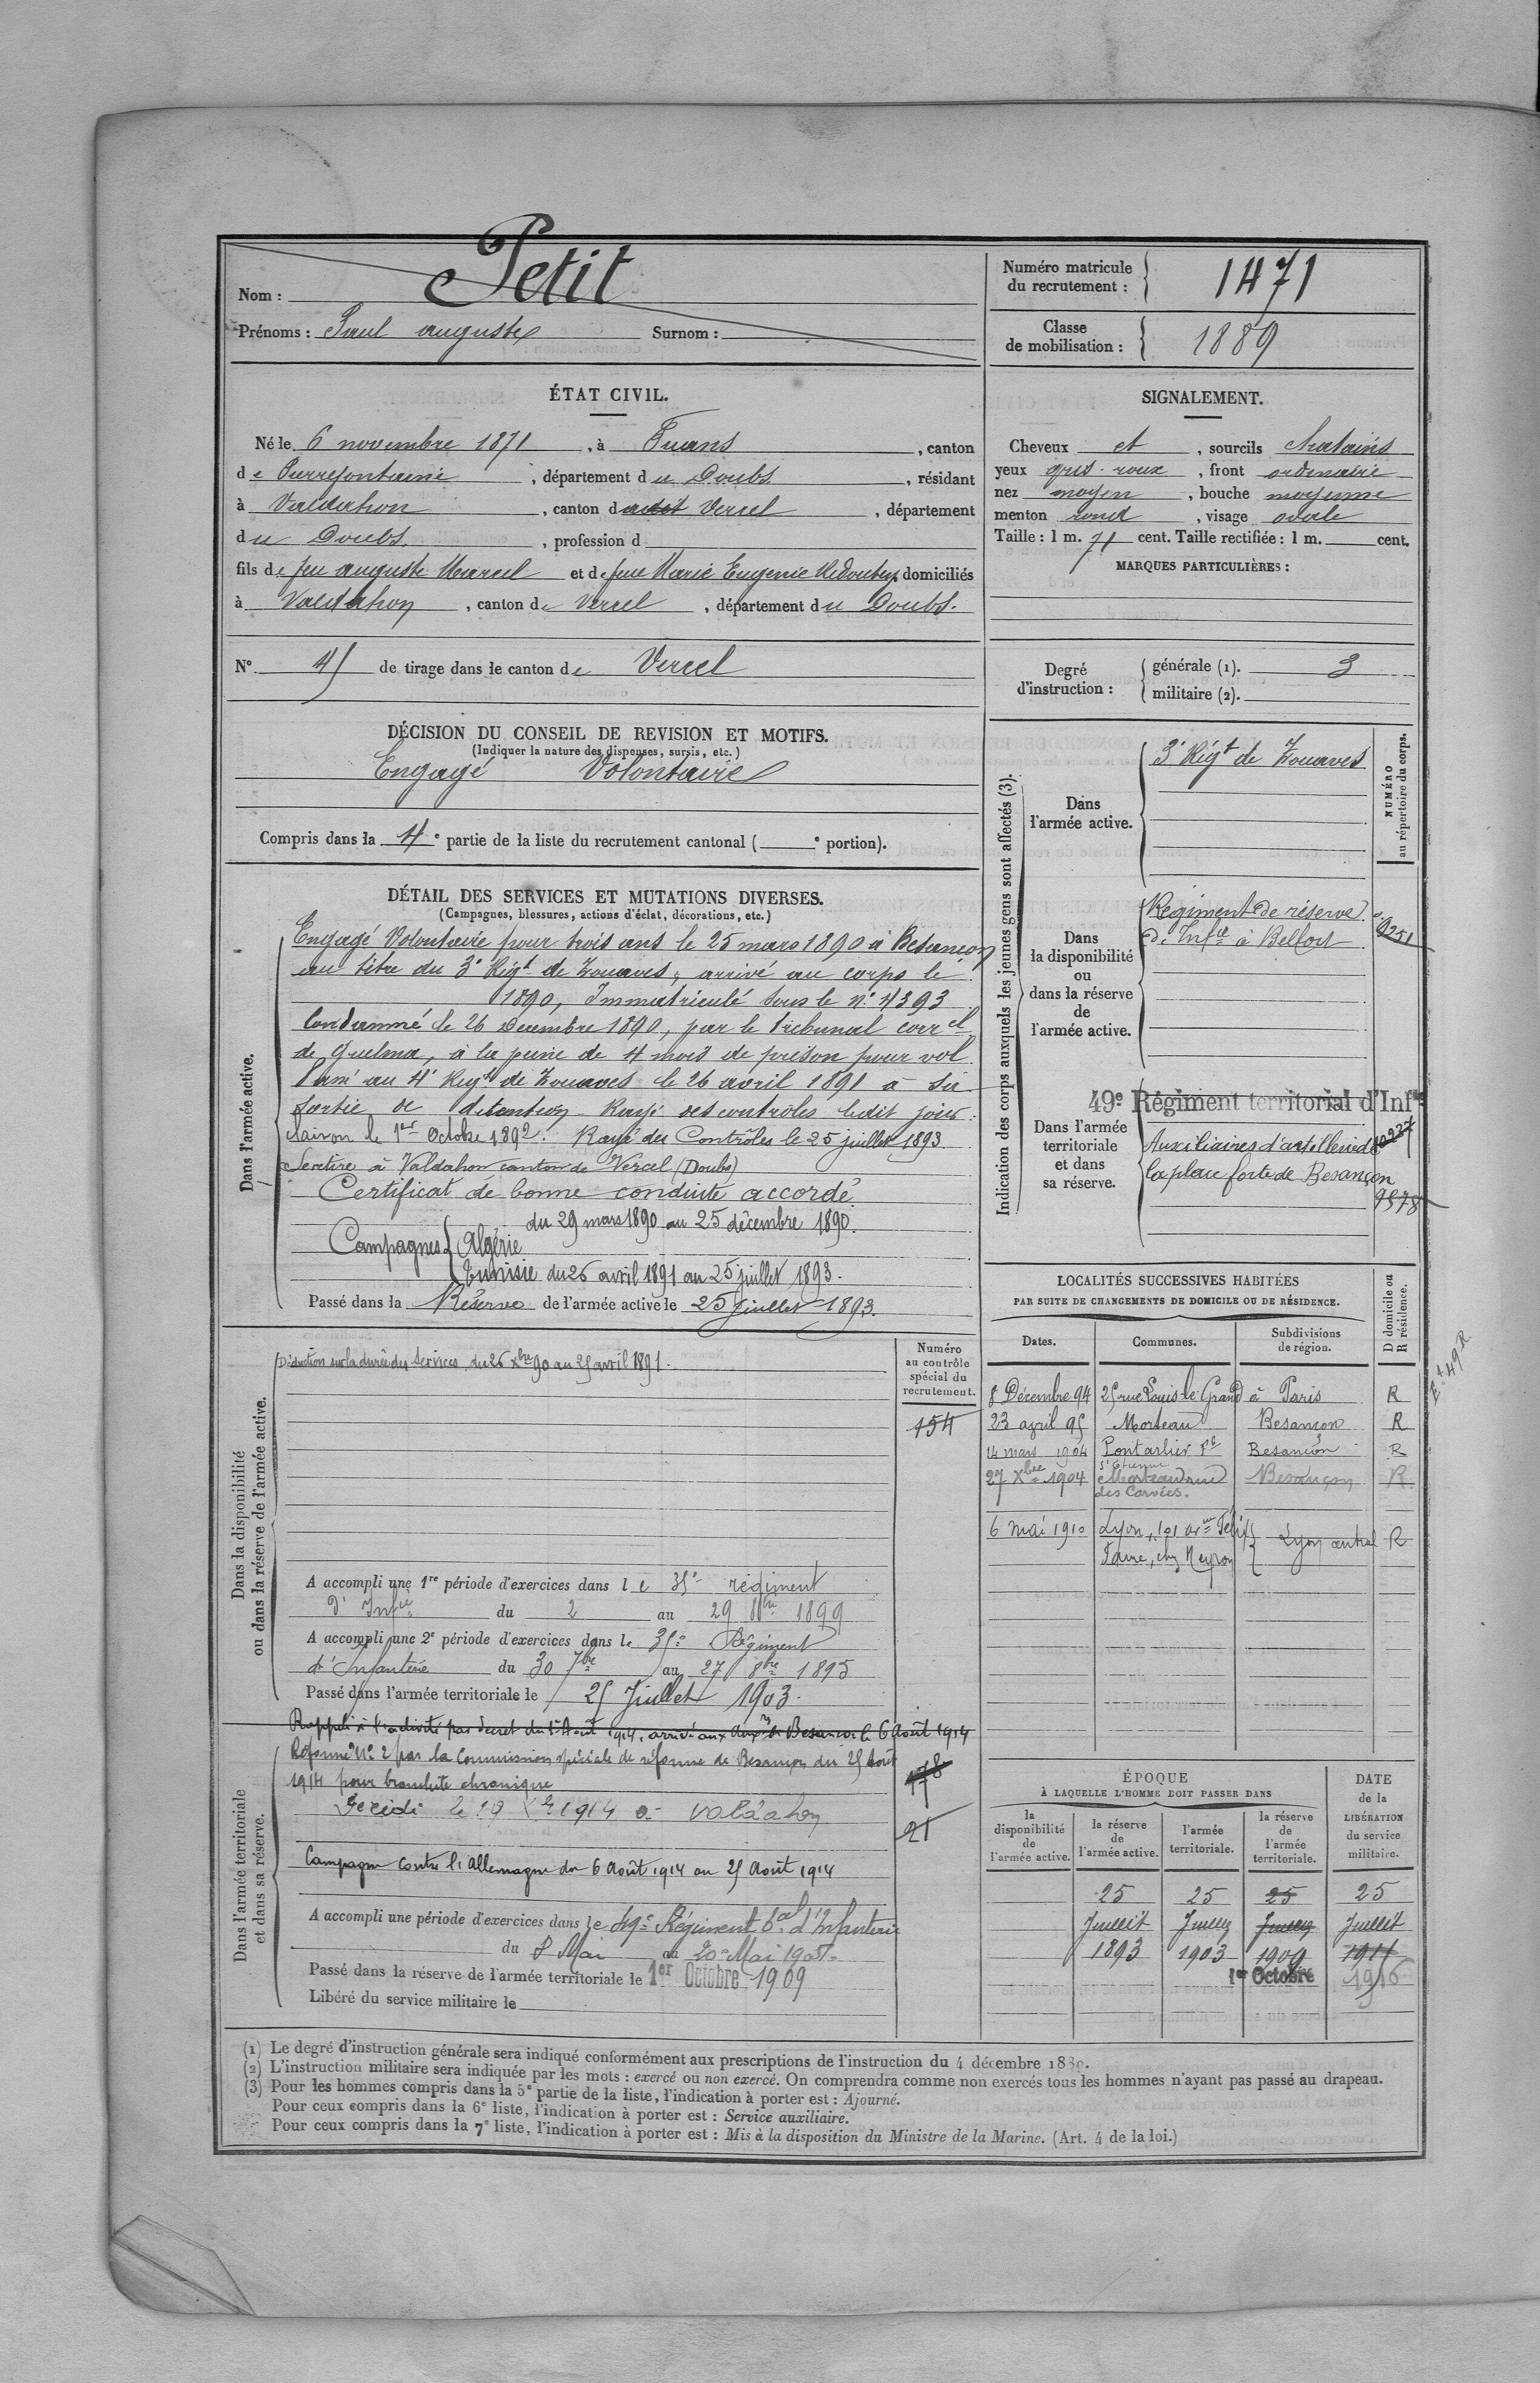 Nom : Petit
Prénoms : Paul auguste Surnom :
Numéro matricule du recrutement : 1471
Classe de mobilisation : 1889
ÉTAT CIVIL.
Né le 6 novembre 1871, à Fuans, canton
de Pierrefontaine, département du Doubs, résidant
à Valdahon, canton d Vercel, département
du Doubs, profession d
fils de feu auguste Marcel et de feue Marie Eugenie domiciliés
à Valdahon, canton de Vercel, département du Doubs.
N° 45 de tirage dans le canton de Vercel
SIGNALEMENT.
Cheveux et, sourcils chatains
yeux gris-roux, front ordinaire
nez moyen, bouche moyenne
menton rond, visage ovale
Taille : 1 m. 71 cent. Taille rectifiée : 1 m. cent.
MARQUES PARTICULIÈRES :
Degré d'instruction : générale (1). 3
militaire (2).
DÉCISION DU CONSEIL DE REVISION ET MOTIFS.
(Indiquer la nature des dispenses, sursis, etc.)
Engagé Volontaire
Compris dans la 4e partie de la liste du recrutement cantonal ( e portion).
DÉTAIL DES SERVICES ET MUTATIONS DIVERSES.
(Campagnes, blessures, actions d'éclat, décorations, etc.)
Dans l'armée active.
Engagé Volontaire pour trois ans le 25 mars 1890 à Besançon
au titre du 3e Régt de Zouaves, arrivé au corps le
1890, Immatriculé sous le n° 4393
Condamné le 26 Decembre 1890, par le Tribunal correl
de Guelma, à la peine de 4 mois de prison pour vol
Passé au 4e Regt de Zouaves le 26 avril 1891 à sa
sortie de detention Rayé des controles ledit jour.
Clairon le 1er Octobre 1892. Rayé des Contrôles le 25 juillet 1893
Se retire à Valdahon canton de Vercel (Doubs)
Certificat de bonne conduite accordé
Campagnes { Algérie du 29 mars 1890 au 25 décembre 1890.
Tunisie du 26 avril 1891 au 25 juillet 1893.
Passé dans la Réserve de l'armée active le 25 juillet 1893.
Indication des corps auxquels les jeunes gens sont affectés (3).
NUMÉRO au répertoire du corps.
Dans l'armée active.
3e Régt de Zouaves
Dans la disponibilité ou dans la réserve de l'armée active.
Régiment de réserve
d'Infie à Belfort
9251
Dans l'armée territoriale et dans sa réserve.
49e Régiment territorial d'Infie
Auxiliaires d'artillerie de
la place forte de Besançon
10237
9578
LOCALITÉS SUCCESSIVES HABITÉES
PAR SUITE DE CHANGEMENTS DE DOMICILE OU DE RÉSIDENCE.
Dates. Communes. Subdivisions de région. D domicile ou R résidence.
8 Décembre 94 25 rue Louis le Grand à Paris R
23 avril 95 Morteau Besançon R
14 mars 1904 Pontarlier fg St Etienne Besançon R
27 Xbre 1904 Morteau rue des Corvées. Besançon R
6 mai 1910 Lyon, 101 Favre, chez Neyron Lyon central R
Dans la disponibilité ou dans la réserve de l'armée active.
Numéro au contrôle spécial du recrutement.
Déduction sur la durée des Services du 26 Xbre 90 au 25 avril 1891.
154
A accompli une 1re période d'exercices dans le 35e régiment
d'Infie du 2 au 29 1899
A accompli une 2e période d'exercices dans le 35e Régiment
d'Infanterie du 30 7bre au 27 8bre 1895
Passé dans l'armée territoriale le 25 Juillet 1903.
Dans l'armée territoriale et dans sa réserve.
Rappelé à l'activité par décret du 1er Août 1914, arrivé aux de Besançon le 6 Août 1914
Réformé N° 2 par la Commission spéciale de réforme de Besançon du 25 Août
1914 pour bronchite chronique
178
Décédé le 19 1914 à Valdahon
21
Campagne contre l'Allemagne du 6 Août 1914 au 25 Août 1914
A accompli une période d'exercices dans le 49e Régiment tal d'Infanterie
du Mai au 20 Mai 1905
Passé dans la réserve de l'armée territoriale le 1er Octobre 1909
Libéré du service militaire le
ÉPOQUE À LAQUELLE L'HOMME DOIT PASSER DANS
la disponibilité de l'armée active. la réserve de l'armée active. l'armée territoriale. la réserve de l'armée territoriale.
DATE de la LIBÉRATION du service militaire.
25 25 25 25
Juillet Juillet Juillet Juillet
1893 1903 1909 1915
1er Octobre
(1) Le degré d'instruction générale sera indiqué conformément aux prescriptions de l'instruction du 4 décembre 1889.
(2) L'instruction militaire sera indiquée par les mots : exercé ou non exercé. On comprendra comme non exercés tous les hommes n'ayant pas passé au drapeau.
(3) Pour les hommes compris dans la 5e partie de la liste, l'indication à porter est : Ajourné.
Pour ceux compris dans la 6e liste, l'indication à porter est : Service auxiliaire.
Pour ceux compris dans la 7e liste, l'indication à porter est : Mis à la disposition du Ministre de la Marine. (Art. 4 de la loi.)